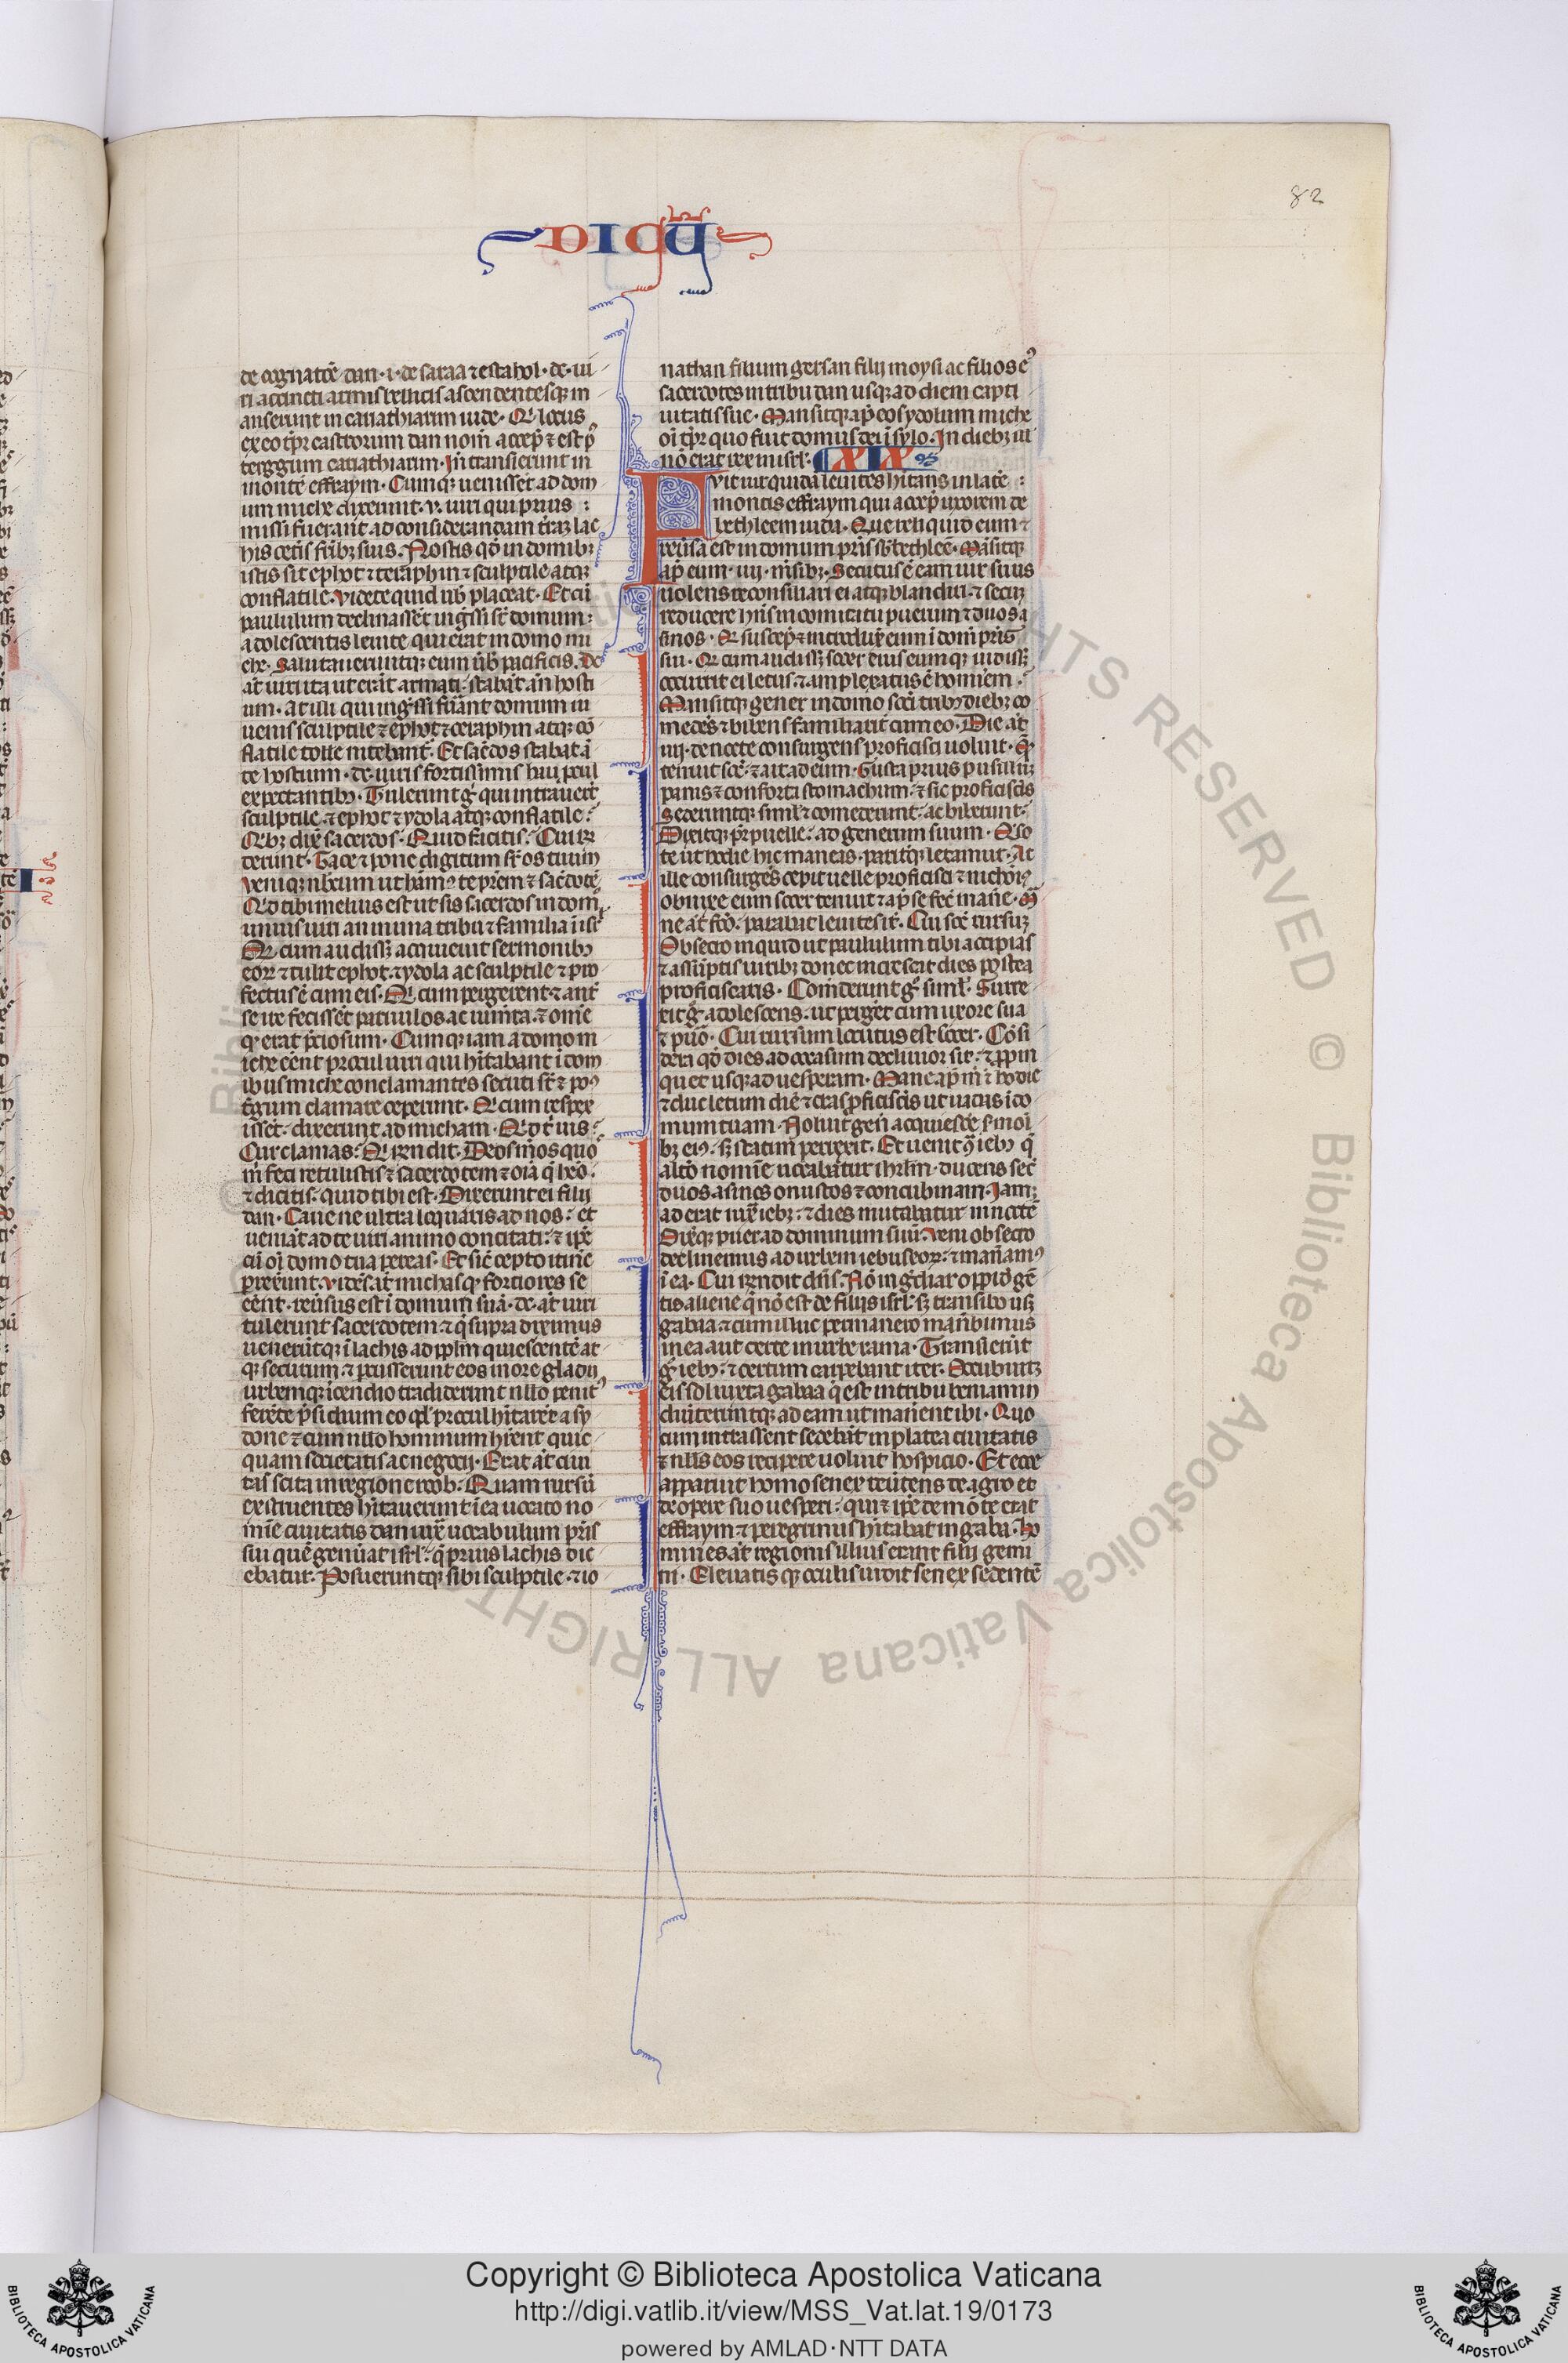 82
DICU̅
de cognatōe dan · i · de saraa ⁊ estahol · de · ui
ri accincti armis bellicis ascendentesq; in
anserunt in cariathiarim iude · Q̇ locus
ex eo tp̄r castrorum dan nom̄ accep̄ ⁊ est p̄
terggum cariathiarim · In̄ transierunt in
montē effraym · Cumq; uenissēt ad dom
um miche dixerunt · v · uiri qui prius :
missi fuerant ad considerandam t̄raʒ lac
his cet̄is fr̄ibʒ suis · Nostis qđ in domibʒ
istis sit ephot ⁊ teraphin ⁊ sculptile atq;
conflatile · videte quid uob̄ placeat · Et cū
paululum declinassēt inḡssi sūt domum :
adolescentis leuite qui erat in domo mi
che · Salutaueruntq; eum ūb̄ pacificis · dc
āt uiri ita ut erāt armati · stabāt an̄ hosti
um · At illi qui inḡssi fūant domum iu
uenis sculptile ⁊ ephot ⁊ teraphin atq; cō
flatile tolle nitebant̄ · Et sac̄dos stabat ā
te hostium · dc · uiris fortissimis haut p̄cul
expectantibʒ · Tulerunt g̊ qui intrauer̄t
sculptile ⁊ ephot ⁊ ydola atq; conflatile :
Qībʒ dix̄ sacerdos · Quid facitis : Cui r̄n
derunt · Tace ⁊ pone digitum sr̄ os tuum
veniq; nb̄cum ut ham̄ꝰ te pr̄em ⁊ sac̄dotē
Qđ tibi melius est ut sis sacerdos in dom̄
unius uiri an in una tribu ⁊ familia ī isr̄l
Q̄ cum audissʒ acquieuit sermonibʒ
eoꝝ ⁊ tulit ephot · ⁊ ydola ac sculptile ⁊ pro
fectus ē cum eis · Q̄ cum pergerent · ⁊ ant̄
se ire fecissēt paruulos ac iumta · ⁊ om̄e
q̄ erat p̄ciosum · Cumq; iam a domo m
iche cēnt procul uiri qui hītabant ī dom
ibus miche conclamantes secuti sūt ⁊ poꝰ
t̄gum clamare ceperunt · Q̄ cum respex
issēt · dixerunt ad micham · Qđ t̄ uis :
Cur clamas : Q̄ r̄ndit · Deos m̄os quo
m̄ feci tetulistis ⁊ sacerdotem ⁊ oīa q̄ hēo ·
⁊ dicitis · quid tibi est · Dixerunt ei filij
dan · Caue ne ultra loquaris ad nos : et
ueniāt ad te uiri animo concitati : ⁊ ip̄e
cū oī domo tua pereas · Et sic̄ cepto itine
p̄rex̄unt · vidēs āt michas q̄ fortiores se
cēnt · reūsus est ī domum suā · dc · āt uiri
tulerunt sacerdotem · ⁊ q̄ supra diximus
uenerūtq; ī lachis ad pp̄lm quiescentē at
q; securum ⁊ p̄cusserunt eos in ore gladii
urbemq; īcendio tradiderunt nllo penitꝰ
ferēte p̄sidium eo qđ procul hītarēt a sy
done ⁊ cum nllo hominum hr̄ent quic
quam societatis ac negocij · Erat āt ciui
tas scita in regione roob · Quam rursū
exstruentes hītauerunt ī ea uocato no
mīe ciuitatis dan iuxᵃ uocabulum pr̄is
sui quē genūat isr̄l : q̄ prius lachis dic
ebatur · Posueruntq; sibi sculptile · ⁊ io
nathan filium gersan filij moysi ac filios eꝰ
sacerdotes in tribu dan usq; ad diem capti
uitatis sue · Mansitq; ap̄ eos ydolum miche
oī tp̄r quo fuit domus dei ī sylo · In diebʒ ill
nō erat rex in isr̄l · XIX
FVit uir quidā leuites hītans in latē :
montis effraym qui accep̄ uxorem de
bethleem iuda · Que reliquid eum ⁊
reūsa est in domum pr̄is sui bethleē · Māsitq;
ap̄ eum · iiij · m̄sibʒ · Secutus ē eam uir suus
uolens reconsiliari ei atq; blandiri · ⁊ secū
reducere hn̄s in comitatu puerum ⁊ duos a
sinos · Q̄ suscep̄ ⁊ introdux̄ eum ī dom̄ pr̄is
sui · Q̄ cum audissʒ socer eius eumq; uidissʒ
occurrit ei letus · ⁊ amplexatus ē hominem ·
Mansitq; gener in domo soc̄i tribʒ diebʒ co
medēs ⁊ bibens familiarit̄ cum eo · Die āt
iiij · de nocte consurgens proficisci uoluit · Q̄
tenuit soc̄ · ⁊ ait ad eum · Gusta prius pusillū
panis ⁊ conforta stomachum · ⁊ sic proficiscis̄
Sederuntq; simł ⁊ comederunt · ac biberunt ·
Dixitq; pr̄ puelle : ad generum suum · Q̄so
te ut hodie hic maneas · parit̄q; letamur · At
ille consurgēs cepit uelle proficisci · ⁊ nichōꝰ
obnixe eum socer tenuit ⁊ ap̄ se fec̄ man̄e · M̄
ne āt fc̄o · parabat leuites it̄ · Cui soc̄ rursuʒ
Obsecro inquid ut paululum tibi accipias
⁊ assūptis uiribʒ donec increscat dies postea
proficiscaris · Comederunt g̊ simł · Surre
xit g̊ adolescens · ut perget cum uxore sua
⁊ puō · Cui rursum locutus est socer · Cōsi
dera qđ dies ad occasum decliuior sit · ⁊ p̄pin
quet usq; ad uesperam · Mane ap̄ m̄ ⁊ hodie
⁊ duc letum diē ⁊ cras p̄ficiscis̄ ut uadas ī do
mum tuam · Noluit gen̄ acquiescē s̄moī
bʒ eiꝰ · sʒ statim perrexit · Et uenit 9̄ iebʒ q̄
alt̄o nomīe uocabatur ihrłm · ducens sec̄
duos asinos onustos ⁊ concubinam · Iam
aderat iuxᵃ iebʒ : ⁊ dies mutabatur in nocte
Dixq; puer ad dominum suū · Veni obsecro
declinemus ad urbem iebuseoꝝ · ⁊ maneamꝰ
ī ea · Cui r̄ndit dn̄s · Nō ingr̄diar oppidū gē
tis aliene q̄ nō est de filijs isr̄l · sʒ transibo usʒ
gabaa · ⁊ cum illuc peruenero man̄bimus
in ea aut certe in urbe rama · Transierūt
g̊ iebʒ · ⁊ ceptum carpebant iter · Occubuitʒ
eis sol iuxta gabaa q̄ est in tribu beniamin
diūteruntq; ad eam ut man̄ent ibi · Quo
cum intrassent sedebāt in platea ciuitatis
⁊ nlls eos recipere uoluit hospicio · Et ecce
apparuit homo senex reūtens de agro et
de opere suo uesperi : qui ⁊ ip̄e de mōte erat
effraym ⁊ peregrinus hītabat in gaba · Ho
mines āt regionis illius erant filij gemi
ni · Eleuatis q; oculis uidit senex sedentē
Copyright © Biblioteca Apostolica Vaticana
http://digi.vatlib.it/view/MSS_Vat.lat.19/0173
powered by AMLAD·NTT DATA
BIBLIOTECA APOSTOLICA VATICANA
BIBLIOTECA APOSTOLICA VATICANA